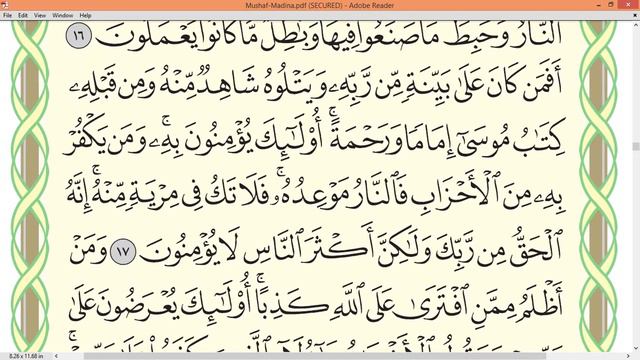 Mushaf-Madina.pdf (SECURED) - Adobe Reader
File Edit View Window Help
النَّارُ وَحَبِطَ مَا صَنَعُوا فِيهَا وَبَاطِلٌ مَّا كَانُوا يَعْمَلُونَ ١٦
أَفَمَن كَانَ عَلَىٰ بَيِّنَةٍ مِّن رَّبِّهِۦ وَيَتْلُوهُ شَاهِدٌ مِّنْهُ وَمِن قَبْلِهِۦ
كِتَٰبُ مُوسَىٰٓ إِمَامًا وَرَحْمَةً ۚ أُو۟لَٰٓئِكَ يُؤْمِنُونَ بِهِۦ ۚ وَمَن يَكْفُرْ
بِهِۦ مِنَ ٱلْأَحْزَابِ فَٱلنَّارُ مَوْعِدُهُۥ ۚ فَلَا تَكُ فِى مِرْيَةٍ مِّنْهُ ۚ إِنَّهُ
ٱلْحَقُّ مِن رَّبِّكَ وَلَٰكِنَّ أَكْثَرَ ٱلنَّاسِ لَا يُؤْمِنُونَ ١٧ وَمَنْ
أَظْلَمُ مِمَّنِ ٱفْتَرَىٰ عَلَى ٱللَّهِ كَذِبًا ۚ أُو۟لَٰٓئِكَ يُعْرَضُونَ عَلَىٰ
8.26 x 11.68 in